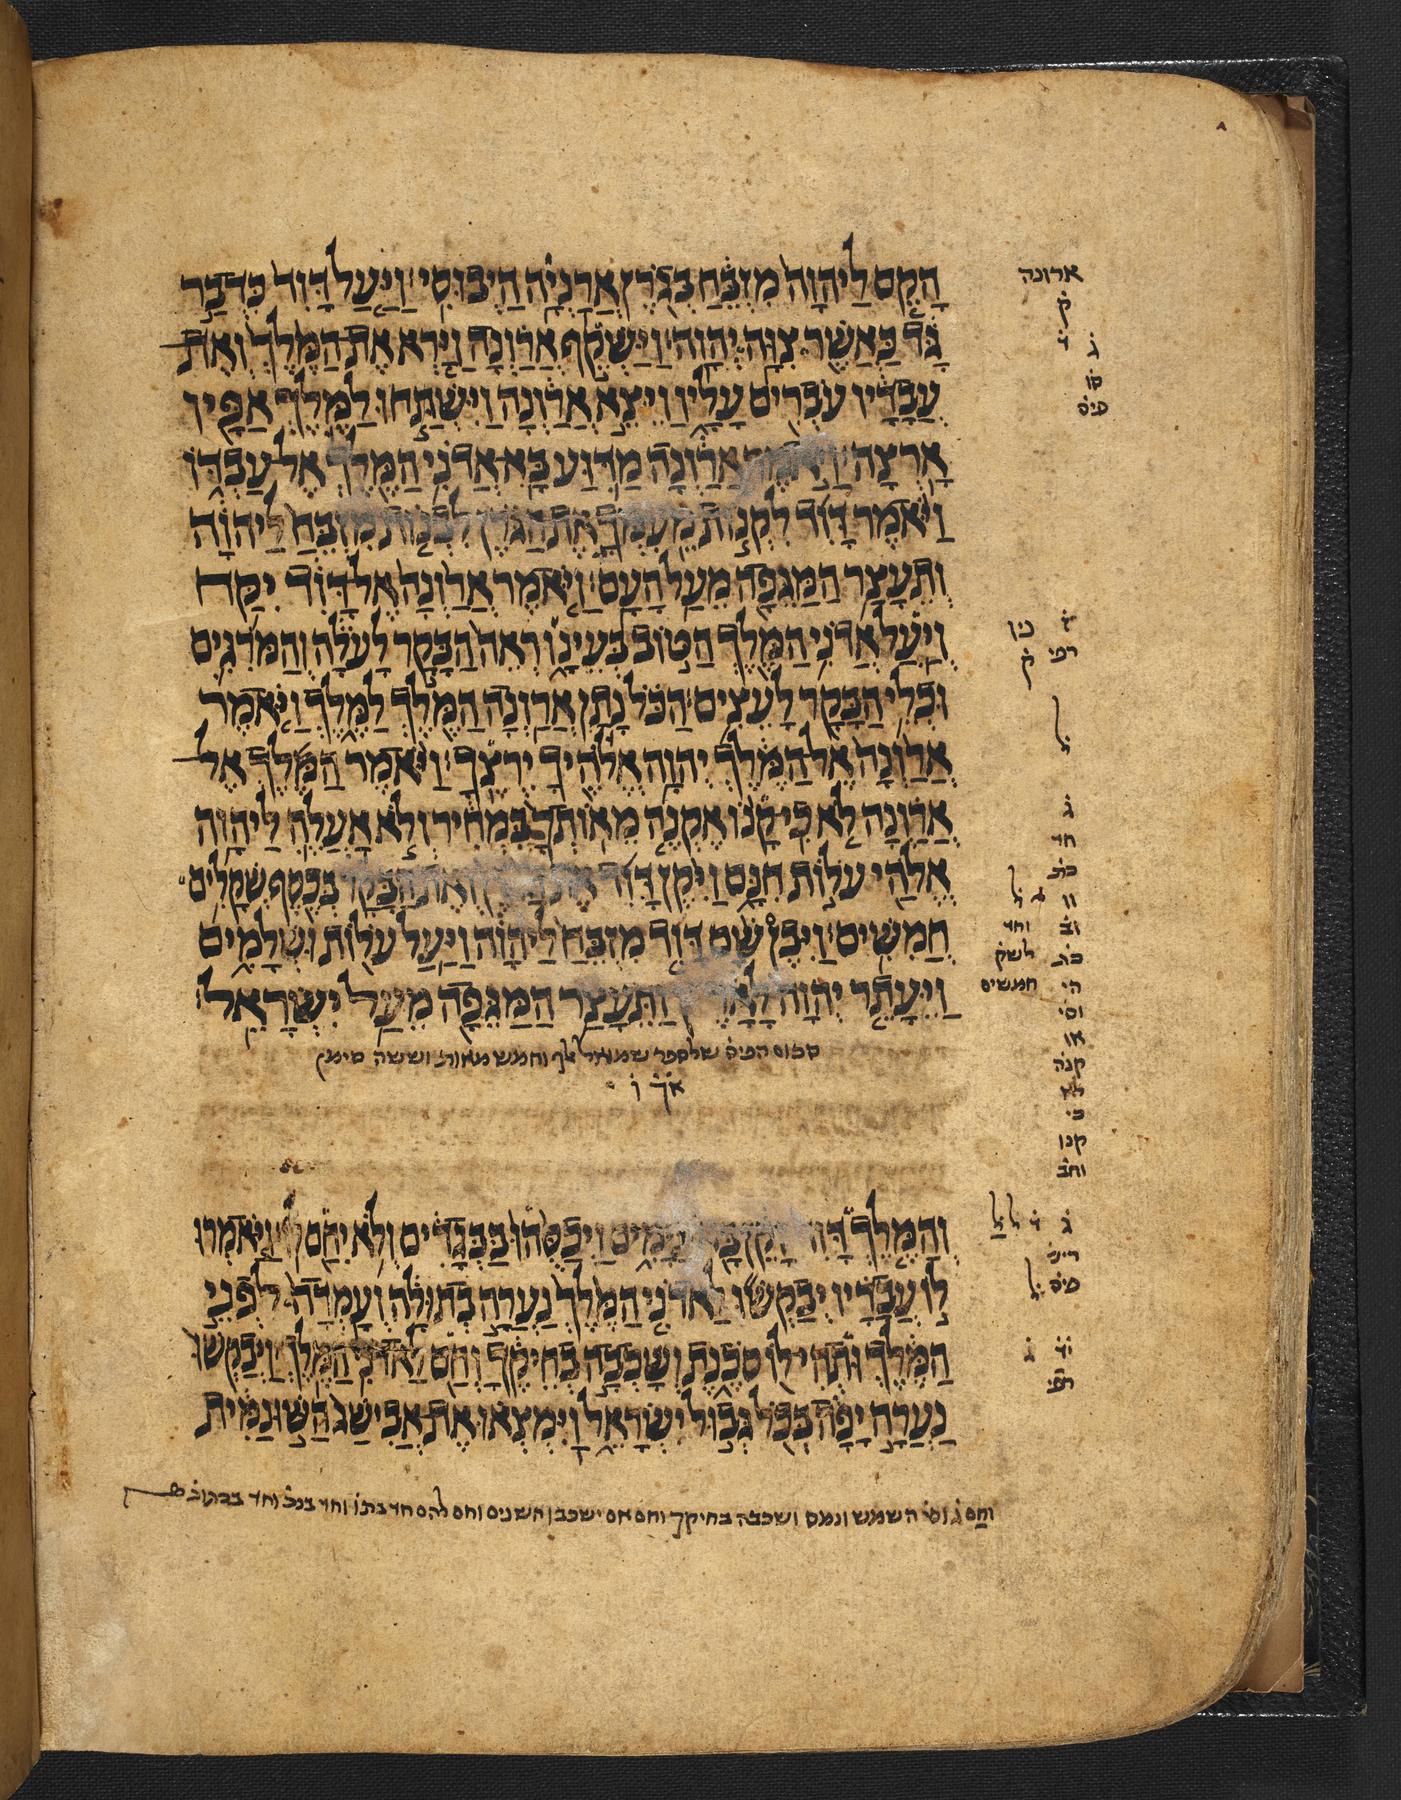 הָקֵם לַיהוָה מִזְבֵּחַ בְּגֹרֶן אֲרַנְיָה הַיְבוּסִי וַיַּעַל דָּוִד כִּדְבַר
גָּד כַּאֲשֶׁר צִוָּה יְהוָה וַיַּשְׁקֵף אֲרַוְנָה וַיַּרְא אֶת הַמֶּלֶךְ וְאֶת
עֲבָדָיו עֹבְרִים עָלָיו וַיֵּצֵא אֲרַוְנָה וַיִּשְׁתַּחוּ לַמֶּלֶךְ אַפָּיו
אָרְצָה וַיֹּאמֶר אֲרַוְנָה מַדּוּעַ בָּא אֲדֹנִי הַמֶּלֶךְ אֶל עַבְדּוֹ
וַיֹּאמֶר דָּוִד לִקְנוֹת מֵעִמְּךָ אֶת הַגֹּרֶן לִבְנוֹת מִזְבֵּחַ לַיהוָה
וְתֵעָצַר הַמַּגֵּפָה מֵעַל הָעָם וַיֹּאמֶר אֲרַוְנָה אֶל דָּוִד יִקַּח
וְיַעַל אֲדֹנִי הַמֶּלֶךְ הַטּוֹב בְּעֵינָיו רְאֵה הַבָּקָר לָעֹלָה וְהַמֹּרִגִּים
וּכְלֵי הַבָּקָר לָעֵצִים הַכֹּל נָתַן אֲרַוְנָה הַמֶּלֶךְ לַמֶּלֶךְ וַיֹּאמֶר
אֲרַוְנָה אֶל הַמֶּלֶךְ יְהוָה אֱלֹהֶיךָ יִרְצֶךָ וַיֹּאמֶר הַמֶּלֶךְ אֶל
אֲרַוְנָה לֹא כִּי קָנוֹ אֶקְנֶה מֵאוֹתְךָ בִּמְחִיר וְלֹא אַעֲלֶה לַיהוָה
אֱלֹהַי עֹלוֹת חִנָּם וַיִּקֶן דָּוִד אֶת הַגֹּרֶן וְאֶת הַבָּקָר בְּכֶסֶף שְׁקָלִים
חֲמִשִּׁים וַיִּבֶן שָׁם דָּוִד מִזְבֵּחַ לַיהוָה וַיַּעַל עֹלוֹת וּשְׁלָמִים
וַיֵּעָתֵר יְהוָה לָאָרֶץ וַתֵּעָצַר הַמַּגֵּפָה מֵעַל יִשְׂרָאֵל
סכום הפיס שלספר שמואל אלף וחמש מאות וששה סימנ
אך ו
וְהַמֶּלֶךְ דָּוִד זָקֵן בָּא בַּיָּמִים וַיְכַסֻּהוּ בַּבְּגָדִים וְלֹא יִחַם לוֹ וַיֹּאמְרוּ
לוֹ עֲבָדָיו יְבַקְשׁוּ לַאדֹנִי הַמֶּלֶךְ נַעֲרָה בְתוּלָה וְעָמְדָה לִפְנֵי
הַמֶּלֶךְ וּתְהִי לוֹ סֹכֶנֶת וְשָׁכְבָה בְחֵיקֶךָ וְחַם לַאדֹנִי הַמֶּלֶךְ וַיְבַקְשׁוּ
נַעֲרָה יָפָה בְּכֹל גְּבוּל יִשְׂרָאֵל וַיִּמְצְאוּ אֶת אֲבִישַׁג הַשּׁוּנַמִּית
וחם ג וס השמש ונמס ושכבה בחיקך וחם אם ישכבון השנים וחם להם חד בתו וחד בנב וחד
ארונה
ק
ג
סו
פיס
ז
רפ
ג
חד
כת
וחד
לשק
חמשים
או
קנה
לא
כי
קנו
ג
ריש
פיס
יד
ג